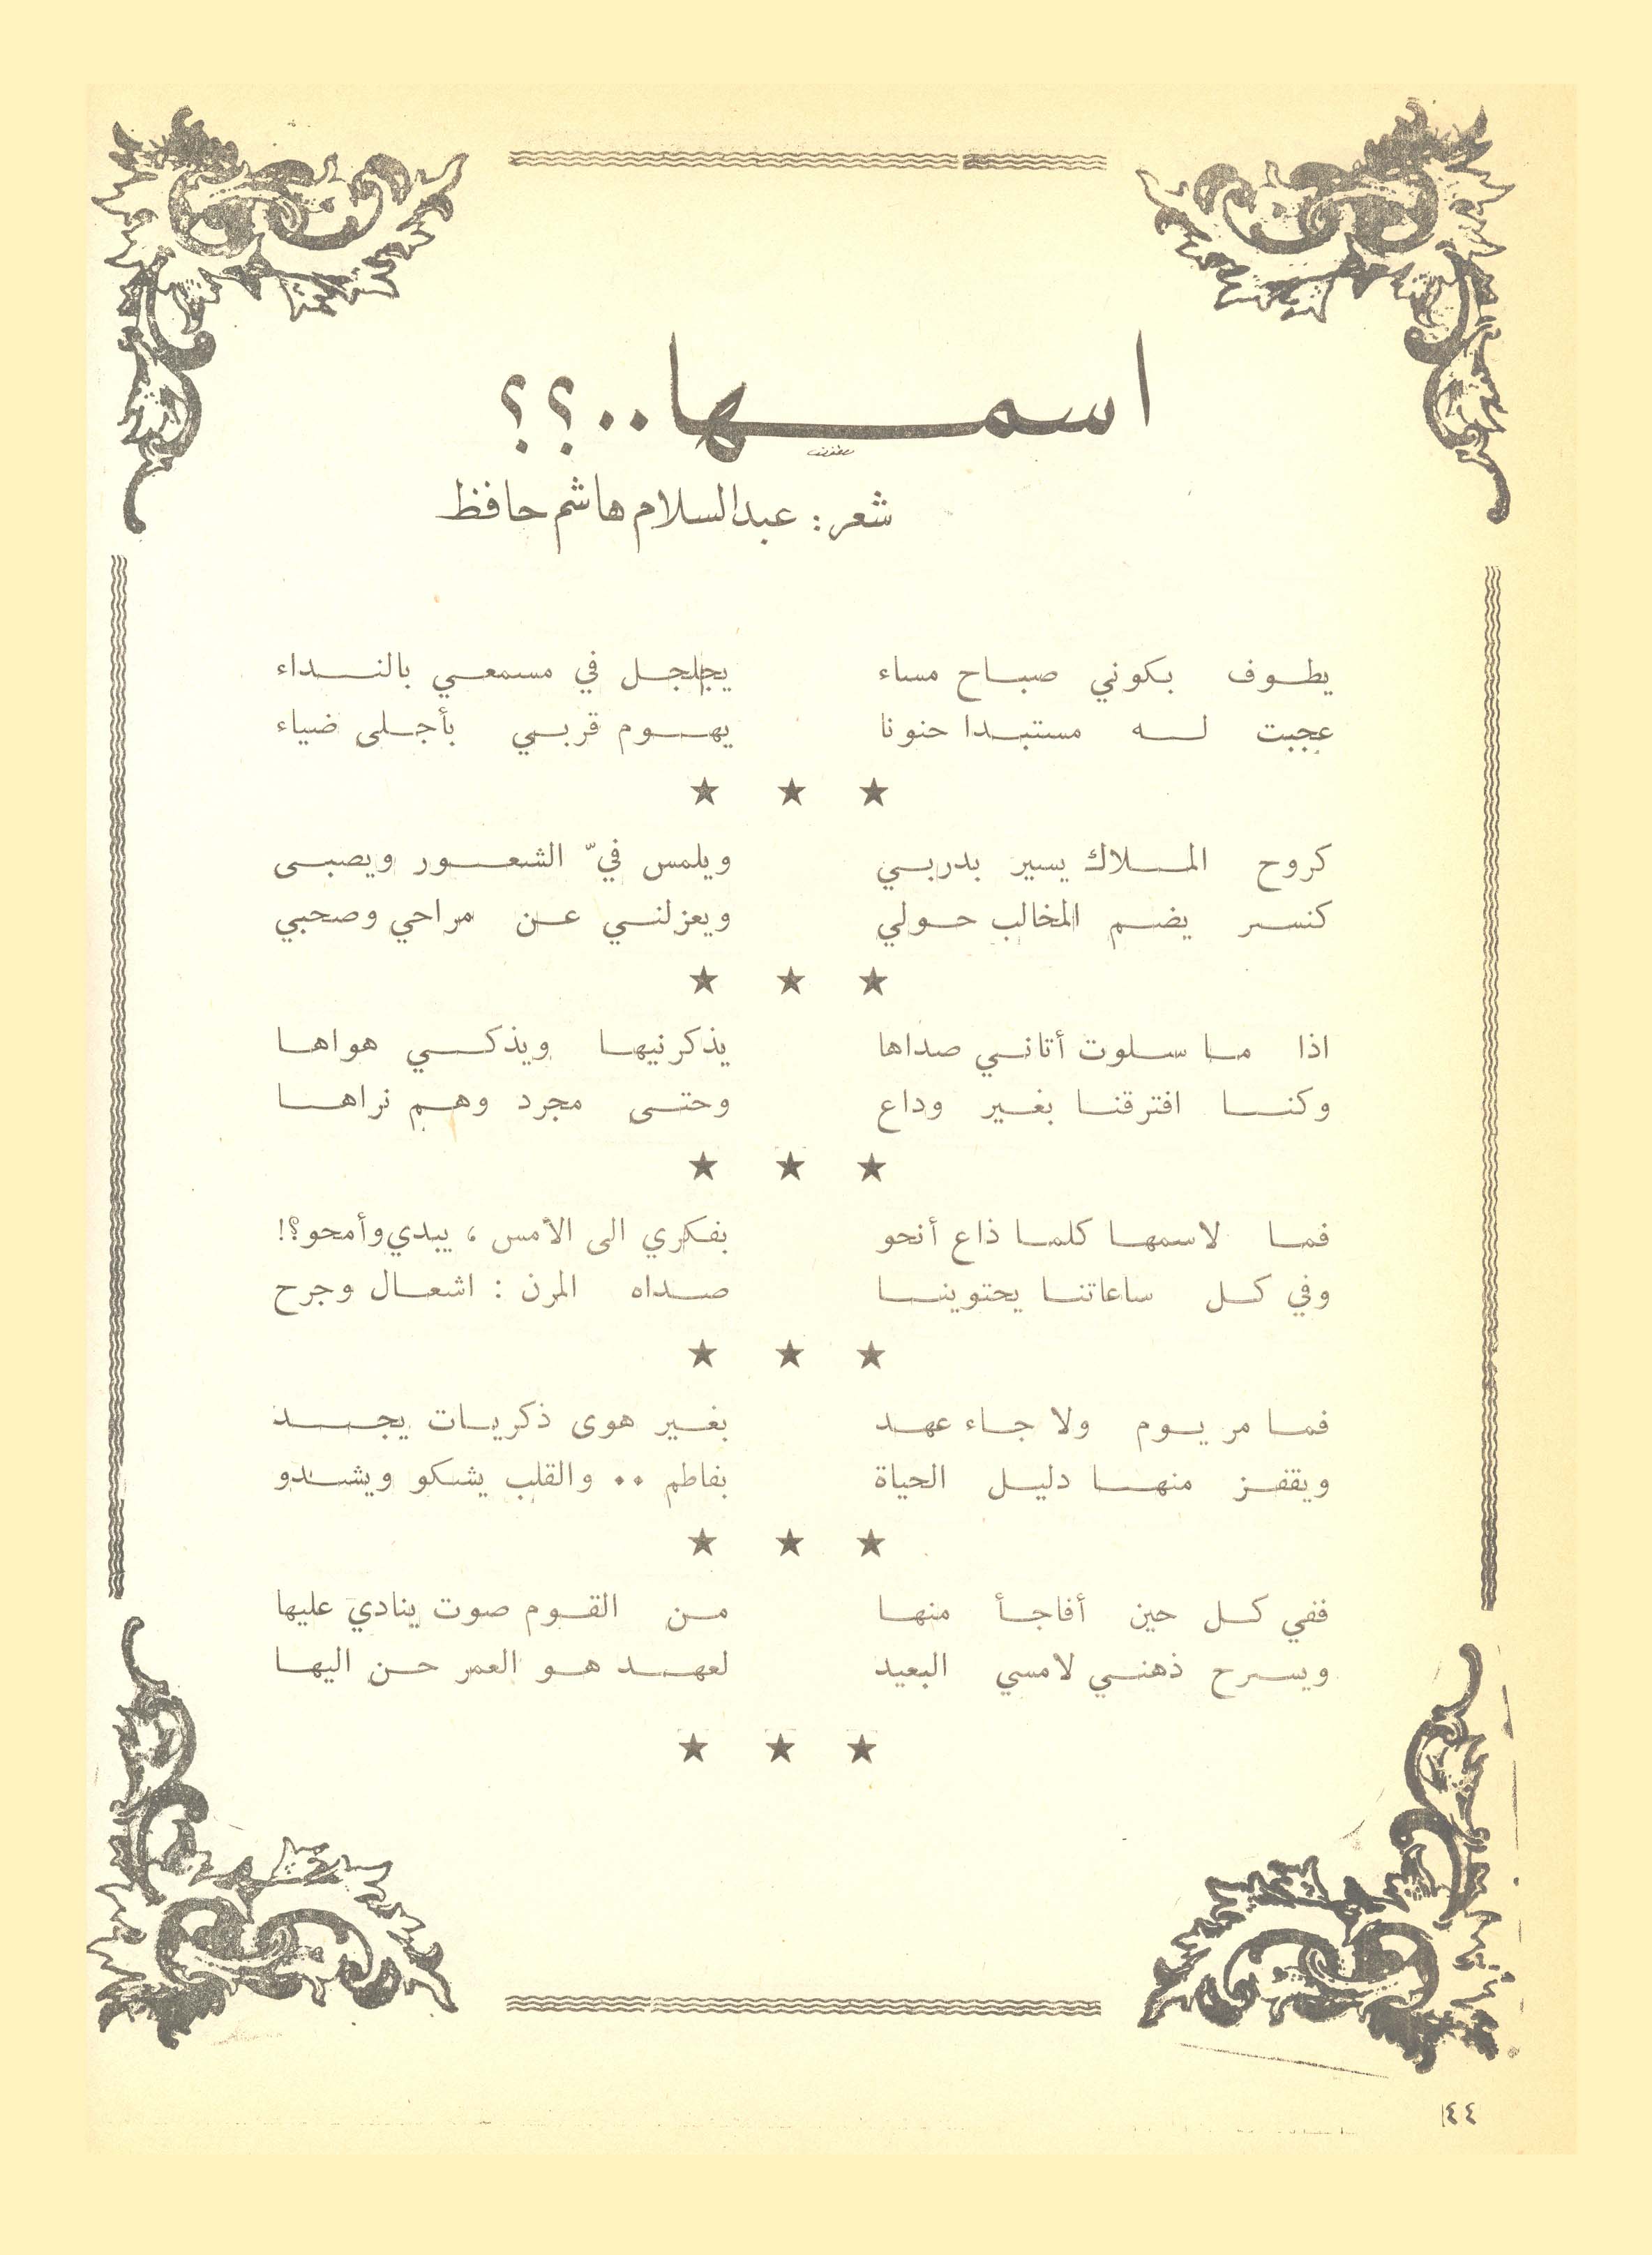 اسمها..؟؟
شعر: عبدالسلام هاشم حافظ
يطوف بكوني صباح مساء يجلجل في مسمعي بالنداء
عجبت له مستبدا حنونا يهوم قربي بأجلى ضياء
★ ★ ★
كروح الملاك يسير بدربي ويلمس فيّ الشعور ويصبى
كنسر يضم المخالب حولي ويعزلني عن مراحي وصحبي
★ ★ ★
اذا ما سلوت أتاني صداها يذكرنيها ويذكي هواها
وكنا افترقنا بغير وداع وحتى مجرد وهم نراها
★ ★ ★
فما لاسمها كلما ذاع أنحو بفكري الى الأمس ، يبدي وأمحو؟!
وفي كل ساعاتنا يحتوينا صداه المرن : اشعال وجرح
★ ★ ★
فما مر يوم ولا جاء عهد بغير هوى ذكريات يجد
ويقفز منها دليل الحياة بفاطم .. والقلب يشكو ويشدو
★ ★ ★
ففي كل حين أفاجأ منها من القوم صوت ينادي عليها
ويسرح ذهني لامسي البعيد لعهد هو العمر حن اليها
★ ★ ★
٤٤